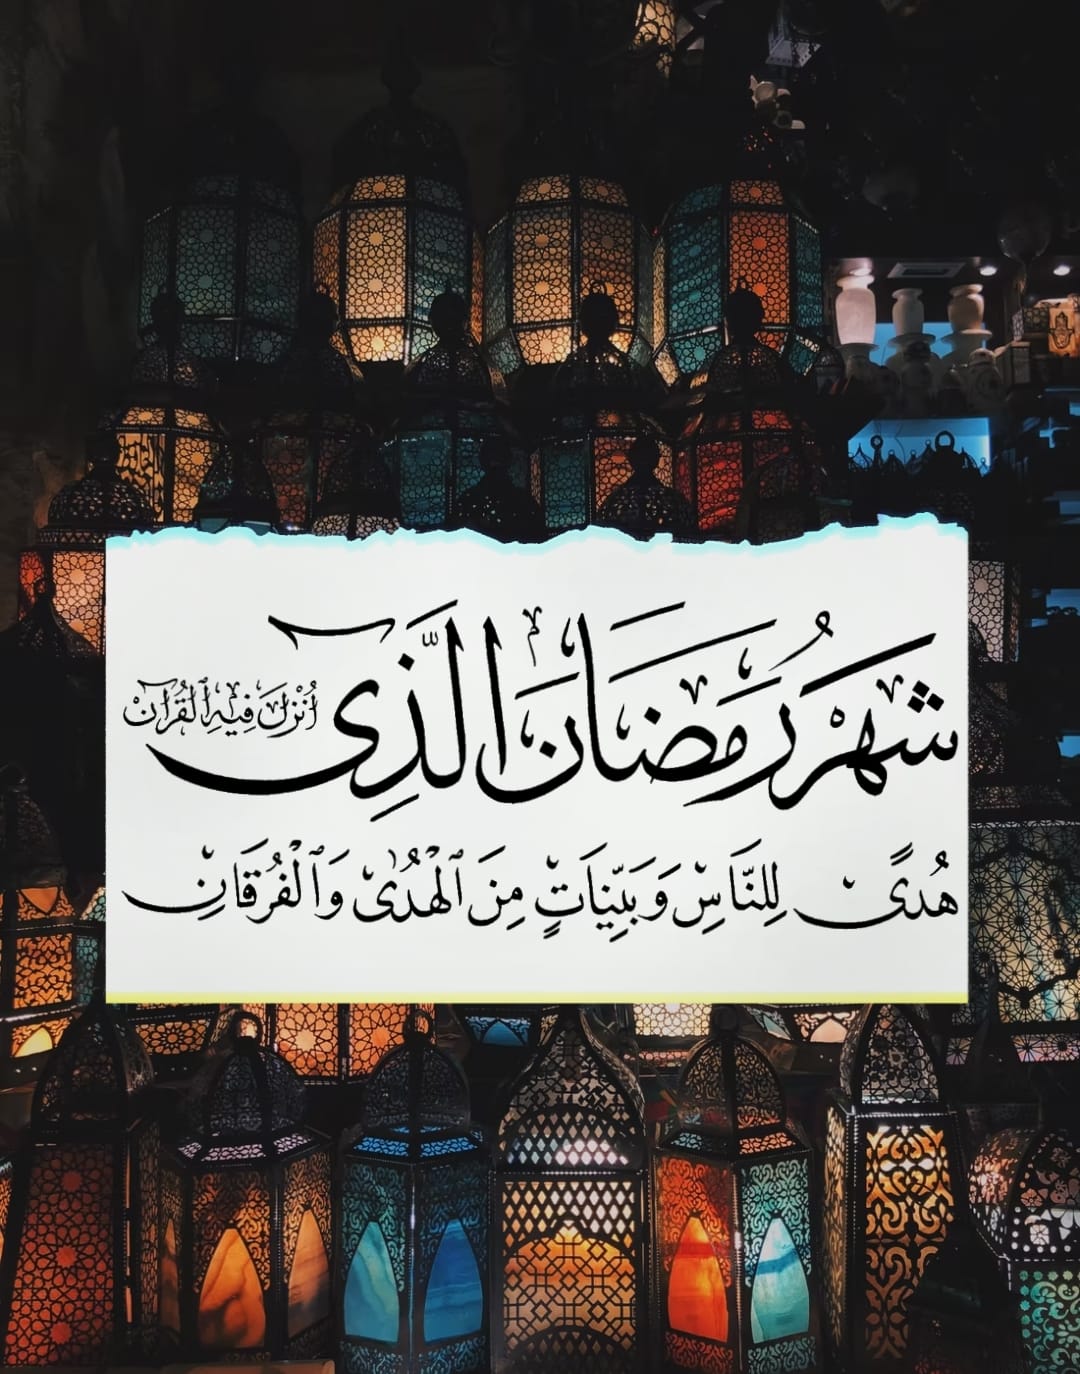 شَهْرُ رَمَضَانَ الَّذِي أُنْزِلَ فِيهِ ٱلْقُرْآنُ
هُدًى لِلنَّاسِ وَبَيِّنَاتٍ مِنَ ٱلْهُدَىٰ وَٱلْفُرْقَانِ